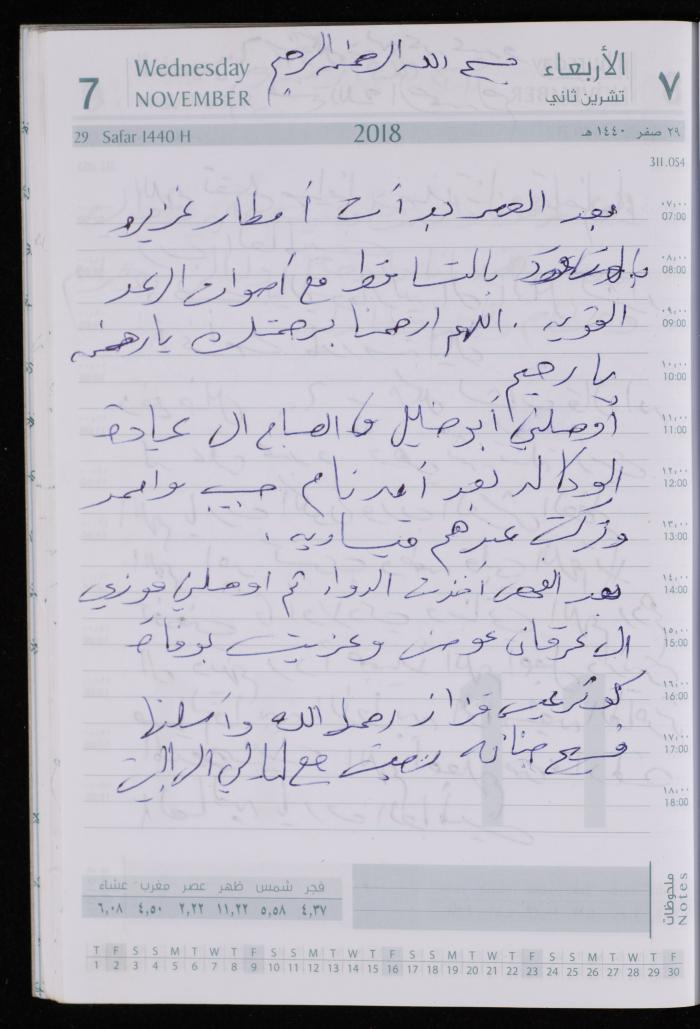 Wednesday
NOVEMBER
7
بسم الله الرحمن الرحيم
الأربعاء
تشرين ثاني
٧
29 Safar 1440 H
2018
٢٩ صفر ١٤٤٠ هـ
311.054
بعد العصر بدأت أمطار غزيره
بالتساقط مع أصوات الرعد
القويه . اللهم ارحمنا برحمتك يا رحمن
يا رحيم
أوصلني أبو خليل في الصباح الى عيادة
الوكاله بعد أن نام حبيب
وتركت عندهم
بعد الفحص أخذت الدواء ثم اوصلني فوزي
الى عرقان عوض وعزيت بوفاة
كوثر قزاز رحمها الله وأسكنها
فسيح جنانه الى البيت
٠٧,٠٠
07:00
٠٨,٠٠
08:00
٠٩,٠٠
09:00
١٠,٠٠
10:00
١١,٠٠
11:00
١٢,٠٠
12:00
١٣,٠٠
13:00
١٤,٠٠
14:00
١٥,٠٠
15:00
١٦,٠٠
16:00
١٧,٠٠
17:00
١٨,٠٠
18:00
فجر شمس ظهر عصر مغرب عشاء
٤,٣٧ ٥,٥٨ ١١,٢٢ ٢,٢٢ ٤,٥٠ ٦,٠٨
ملحوظات
Notes
T F S S M T W T F S S M T W T F S S M T W T F S S M T W T F
1 2 3 4 5 6 7 8 9 10 11 12 13 14 15 16 17 18 19 20 21 22 23 24 25 26 27 28 29 30